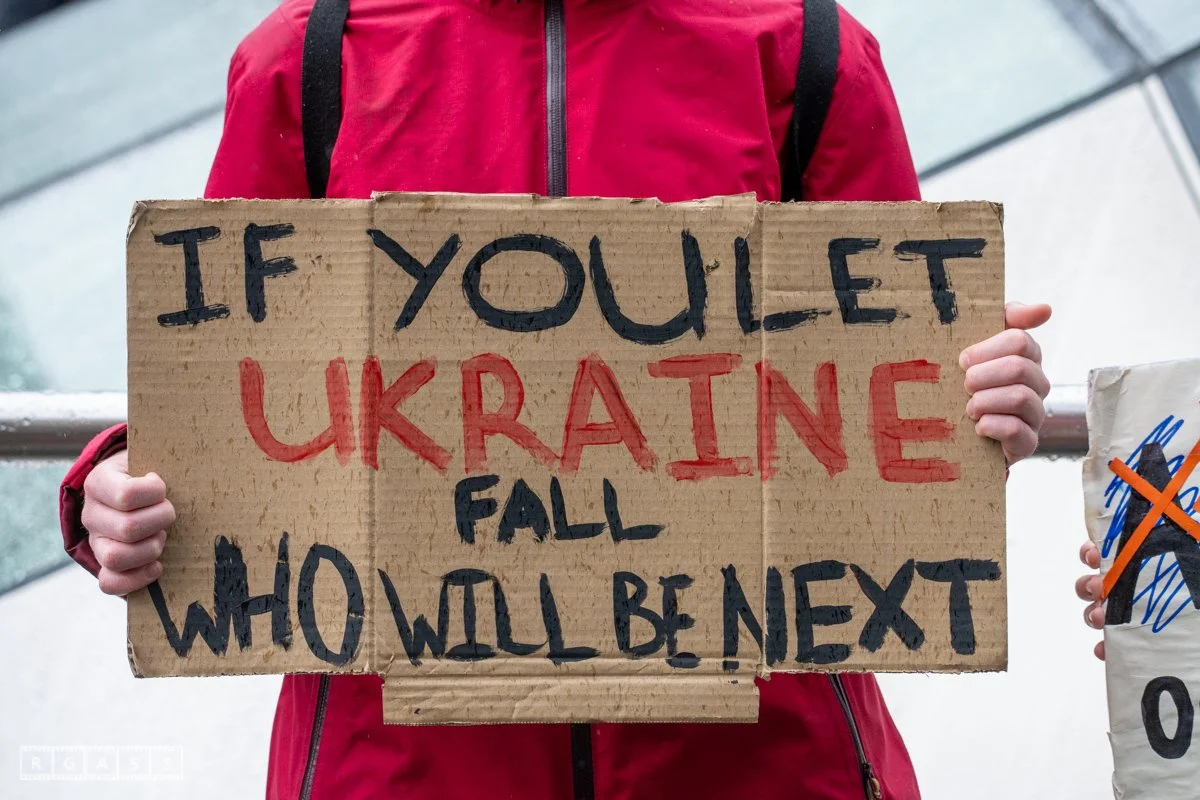 IF YOU LET
UKRAINE
FALL
WHO WILL BE NEXT
RGASS